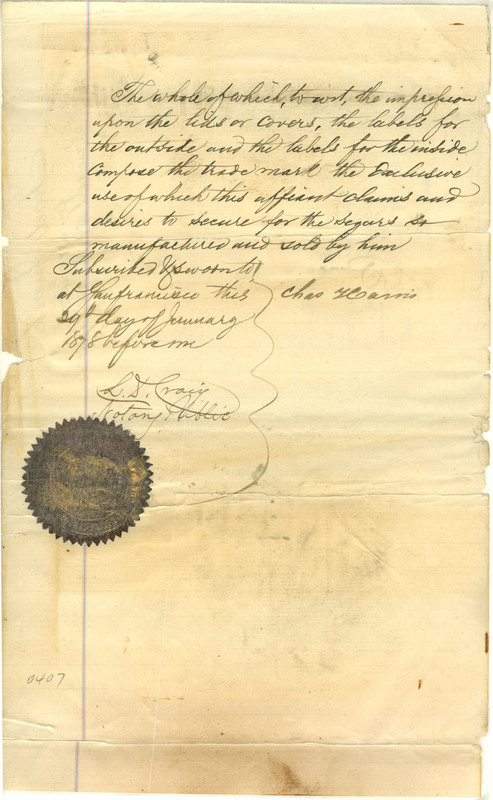 The whole of which, to wit, the impression
upon the lids or covers, the labels for
the outside and the labels for the inside
compose the trade mark the Exclusive
use of which this affiant claims and
desires to secure for the segars so
manufactured and sold by him
Subscribed & sworn to
at San francisco this
29th day of January
1878 before me
Chas Harris
L. D. Craig
Notary Public
0407